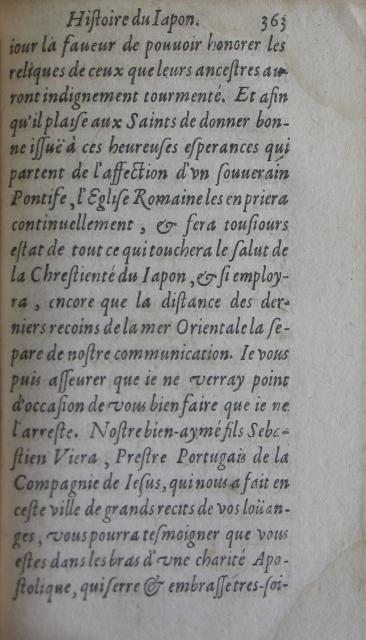 Hiſtoire du Iapon. 363
iour la faueur de pouuoir honorer les
reliques de ceux que leurs anceſtres au-
ront indignement tourmenté. Et afin
qu'il plaiſe aux Saints de donner bon-
ne iſſuë à ces heureuſes eſperances qui
partent de l'affection d'vn ſouuerain
Pontife, l'Egliſe Romaine les en priera
continuellement, & fera touſiours
eſtat de tout ce qui touchera le ſalut de
la Chreſtienté du Iapon, & ſi employ-
ra, encore que la diſtance des der-
niers recoins de la mer Orientale la ſe-
pare de noſtre communication. Ie vous
puis aſſeurer que ie ne verray point
d'occaſion de vous bien faire que ie ne
l'arreſte. Noſtre bien-aymé fils Seba-
ſtien Viera, Preſtre Portugais de la
Compagnie de Ieſus, qui nous a fait en
ceſte ville de grands recits de vos loüan-
ges, vous pourra teſmoigner que vous
eſtes dans les bras d'vne charité Apo-
ſtolique, qui ſerre & embraſſe tres-ſoi-